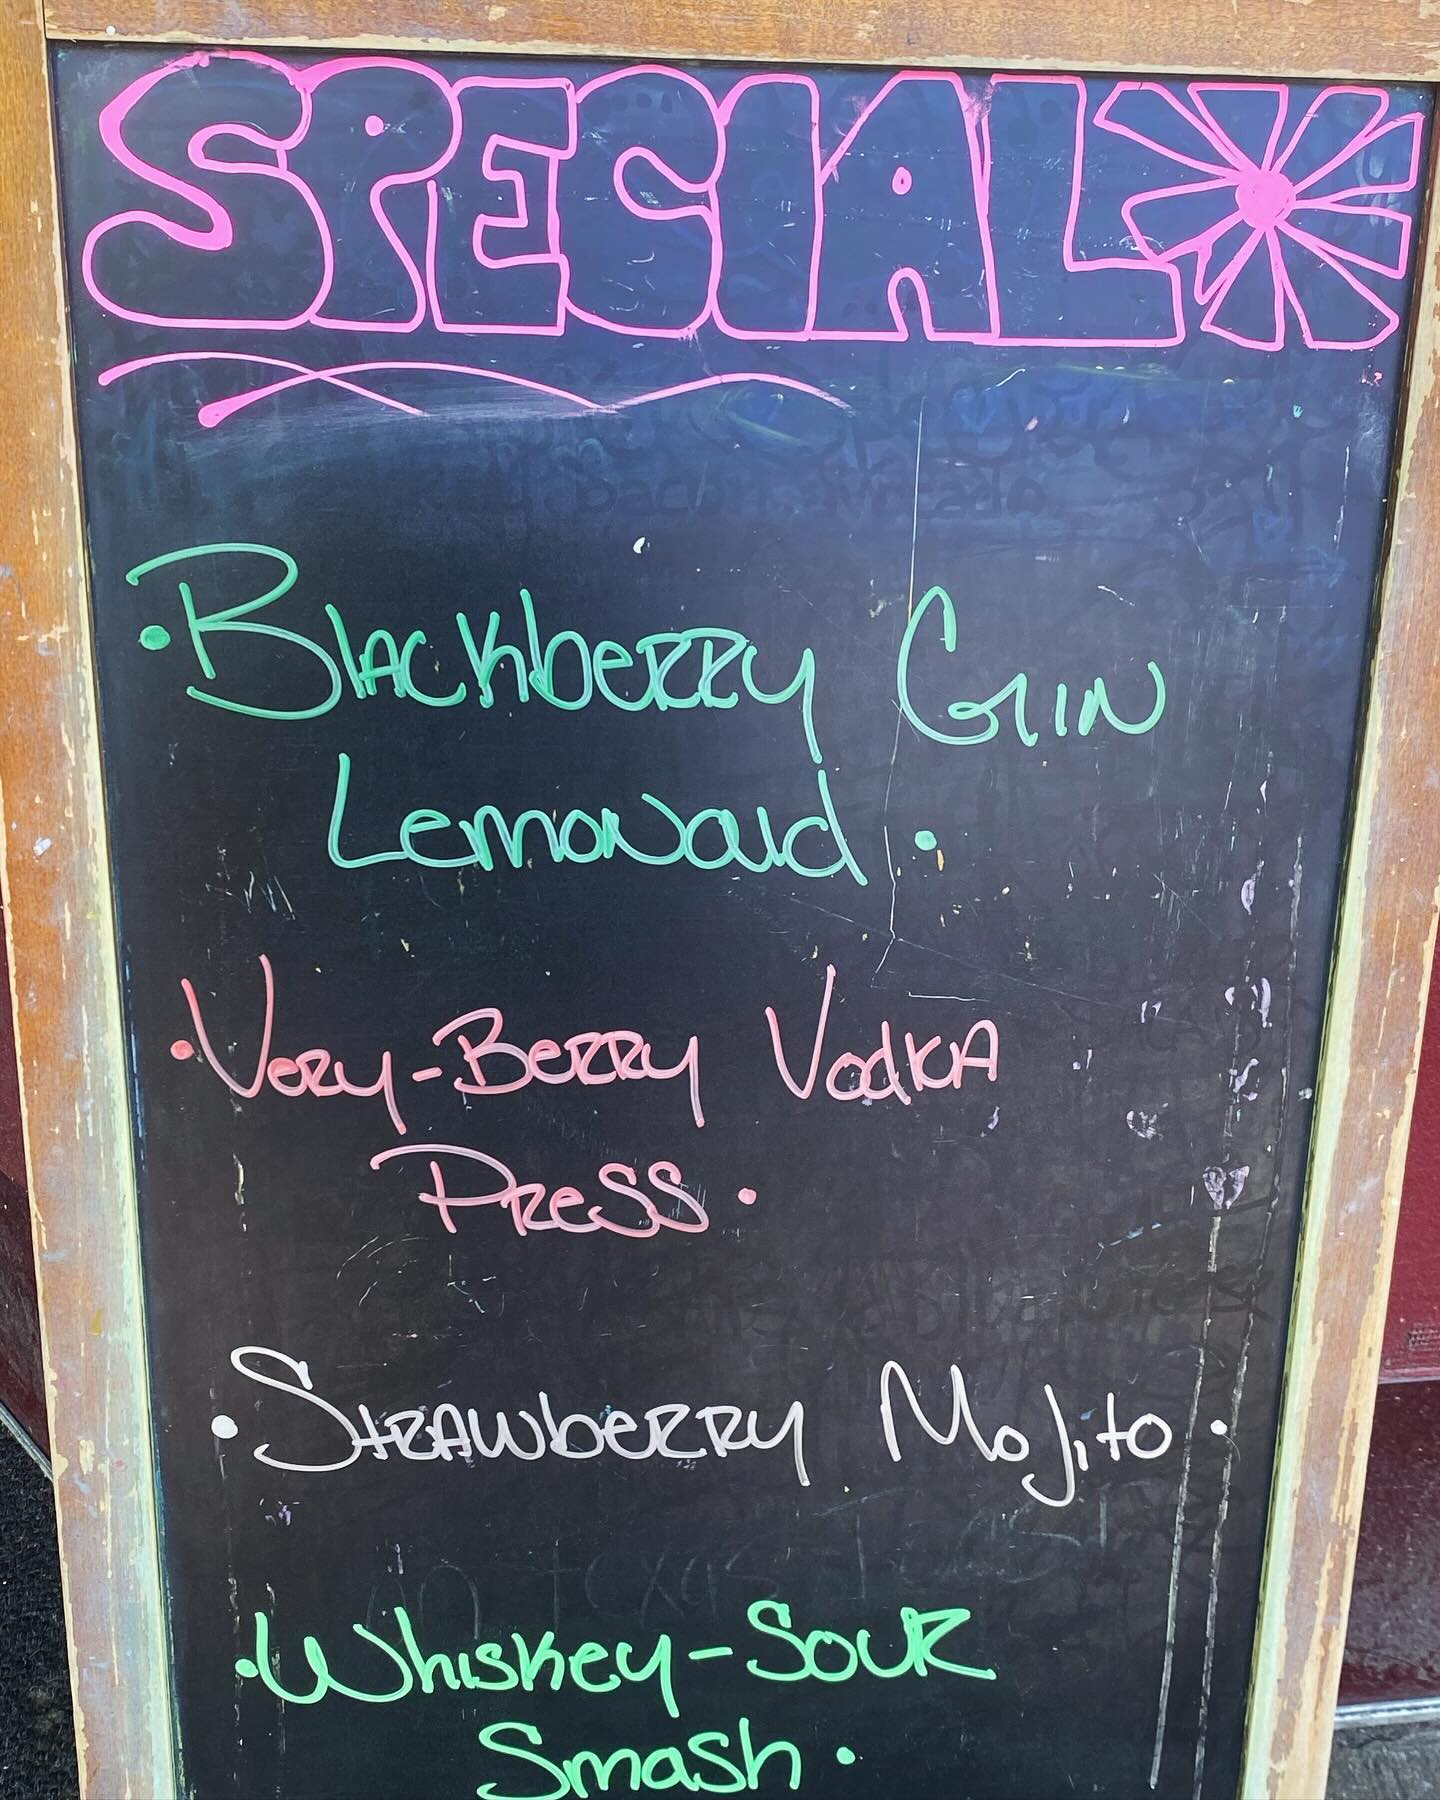 SPECIAL
• Blackberry Gin
Lemonaid •
• Very-Berry Vodka
Press •
• Strawberry Mojito •
• Whiskey-Sour
Smash •